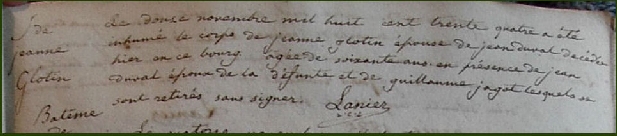 S. de Le douze novembre mil huit cent trente quatre a été
jeanne inhumé le corps de jeanne glotin épouse de jean duval décédée
Glotin hier en ce bourg agée de soixante ans en présence de jean
duval époux de la défunte et de guillaume jagot lesquels se
Batême sont retirés sans signer. Lanier